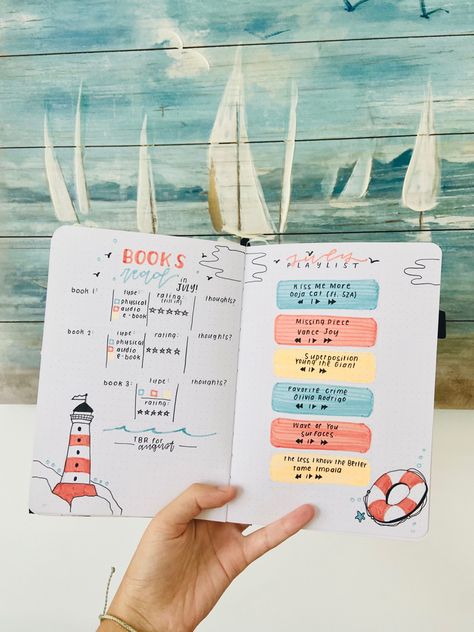 BOOKS
read in
JULY!
book 1:
type:
physical
audio
e-book
rating:
(fill in)
thoughts?
book 2:
type:
physical
audio
e-book
rating:
thoughts?
book 3:
type:
rating:
thoughts?
TBR for
august
july
PLAYLIST
Kiss Me More
Doja Cat (ft. SZA)
Missing Piece
Vance Joy
Superposition
Young the Giant
Favorite Crime
Olivia Rodrigo
Wave of You
Surfaces
The Less I Know the Better
Tame Impala